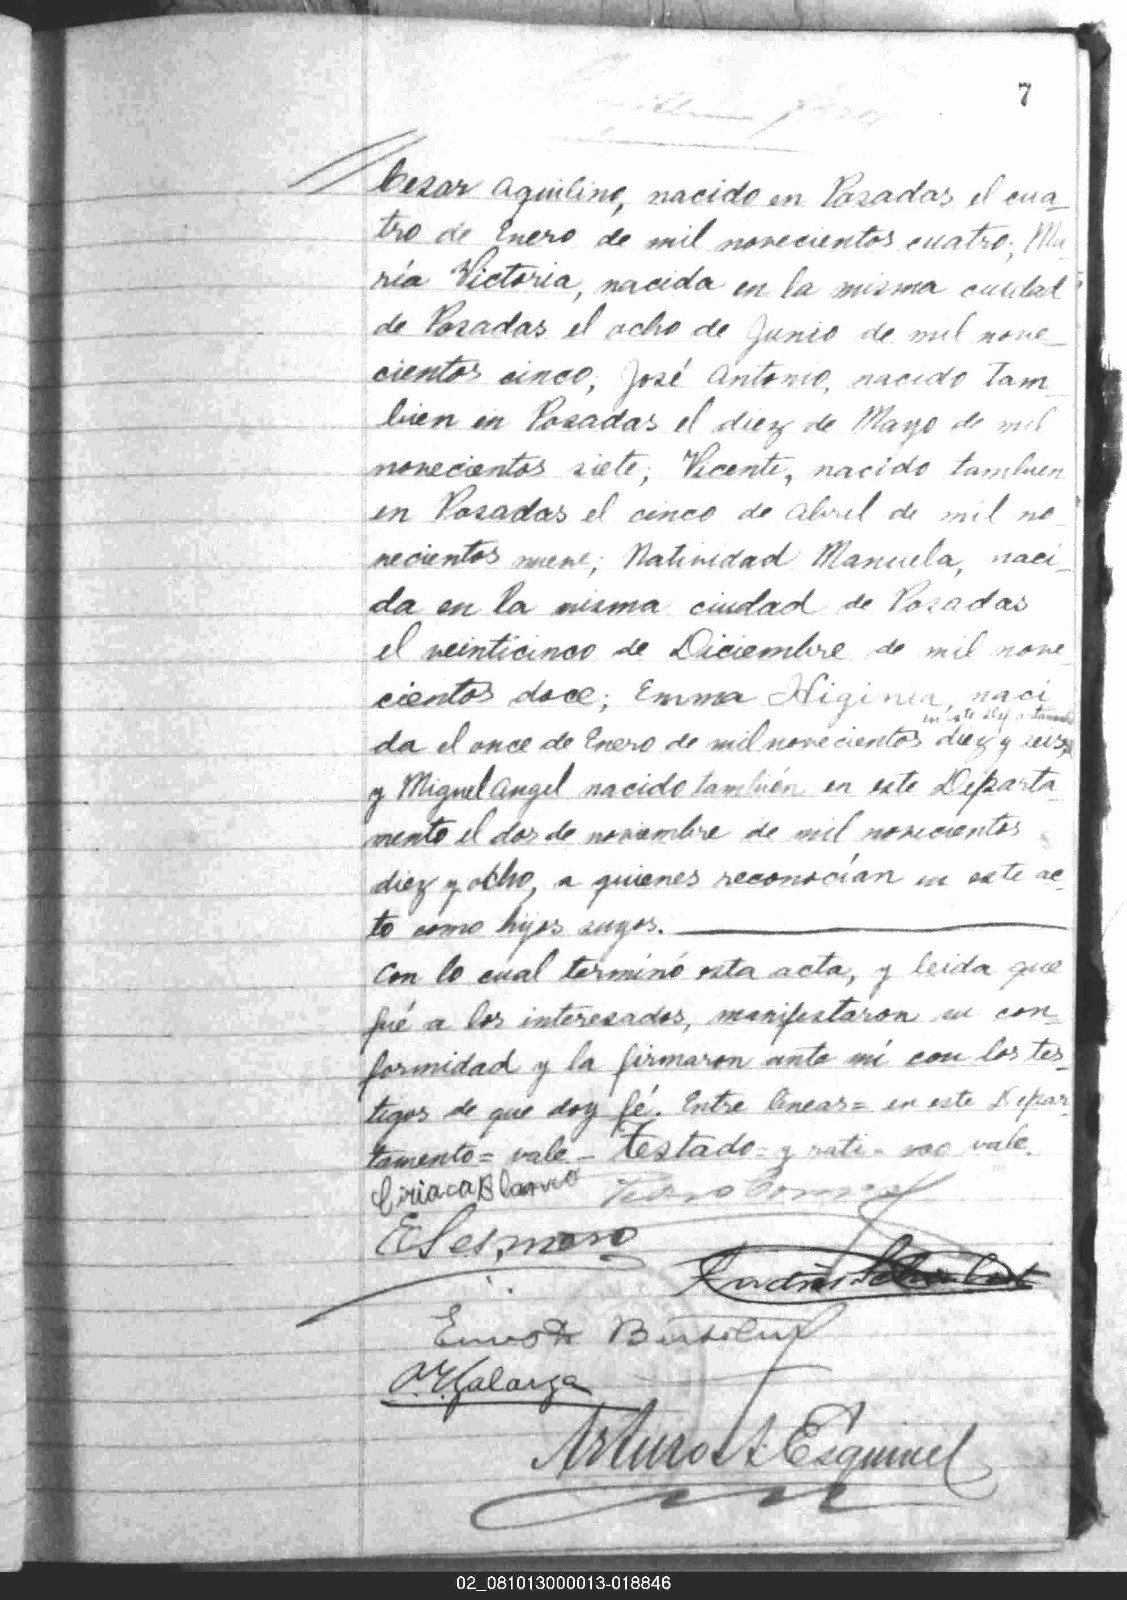 7
Cesar Aquilino, nacido en Posadas el cua-
tro de Enero de mil novecientos cuatro; Ma-
ría Victoria, nacida en la misma ciudad
de Posadas el ocho de Junio de mil nove-
cientos cinco; José Antonio, nacido tam-
bien en Posadas el diez de Mayo de mil
novecientos siete; Vicente, nacido tambien
en Posadas el cinco de Abril de mil no-
vecientos nueve; Natividad Manuela, naci-
da en la misma ciudad de Posadas
el veinticinco de Diciembre de mil nove-
cientos doce; Emma Higinia, naci
en este Departamento
da el once de Enero de mil novecientos diez y seis,
y Miguel Angel nacido también en este Departa-
mento el dos de noviembre de mil novecientos
diez y ocho, a quienes reconocían en este ac-
to como hijos suyos.
Con lo cual terminó esta acta, y leida que
fué a los interesados, manifestaron su con-
formidad y la firmaron ante mí con los tes-
tigos de que doy fé. Entre lineas = en este Depar-
tamento = vale - Testado = y rati = no vale.
Ciriaca Blanco
Arturo A. Esquivel
02_081013000013-018846